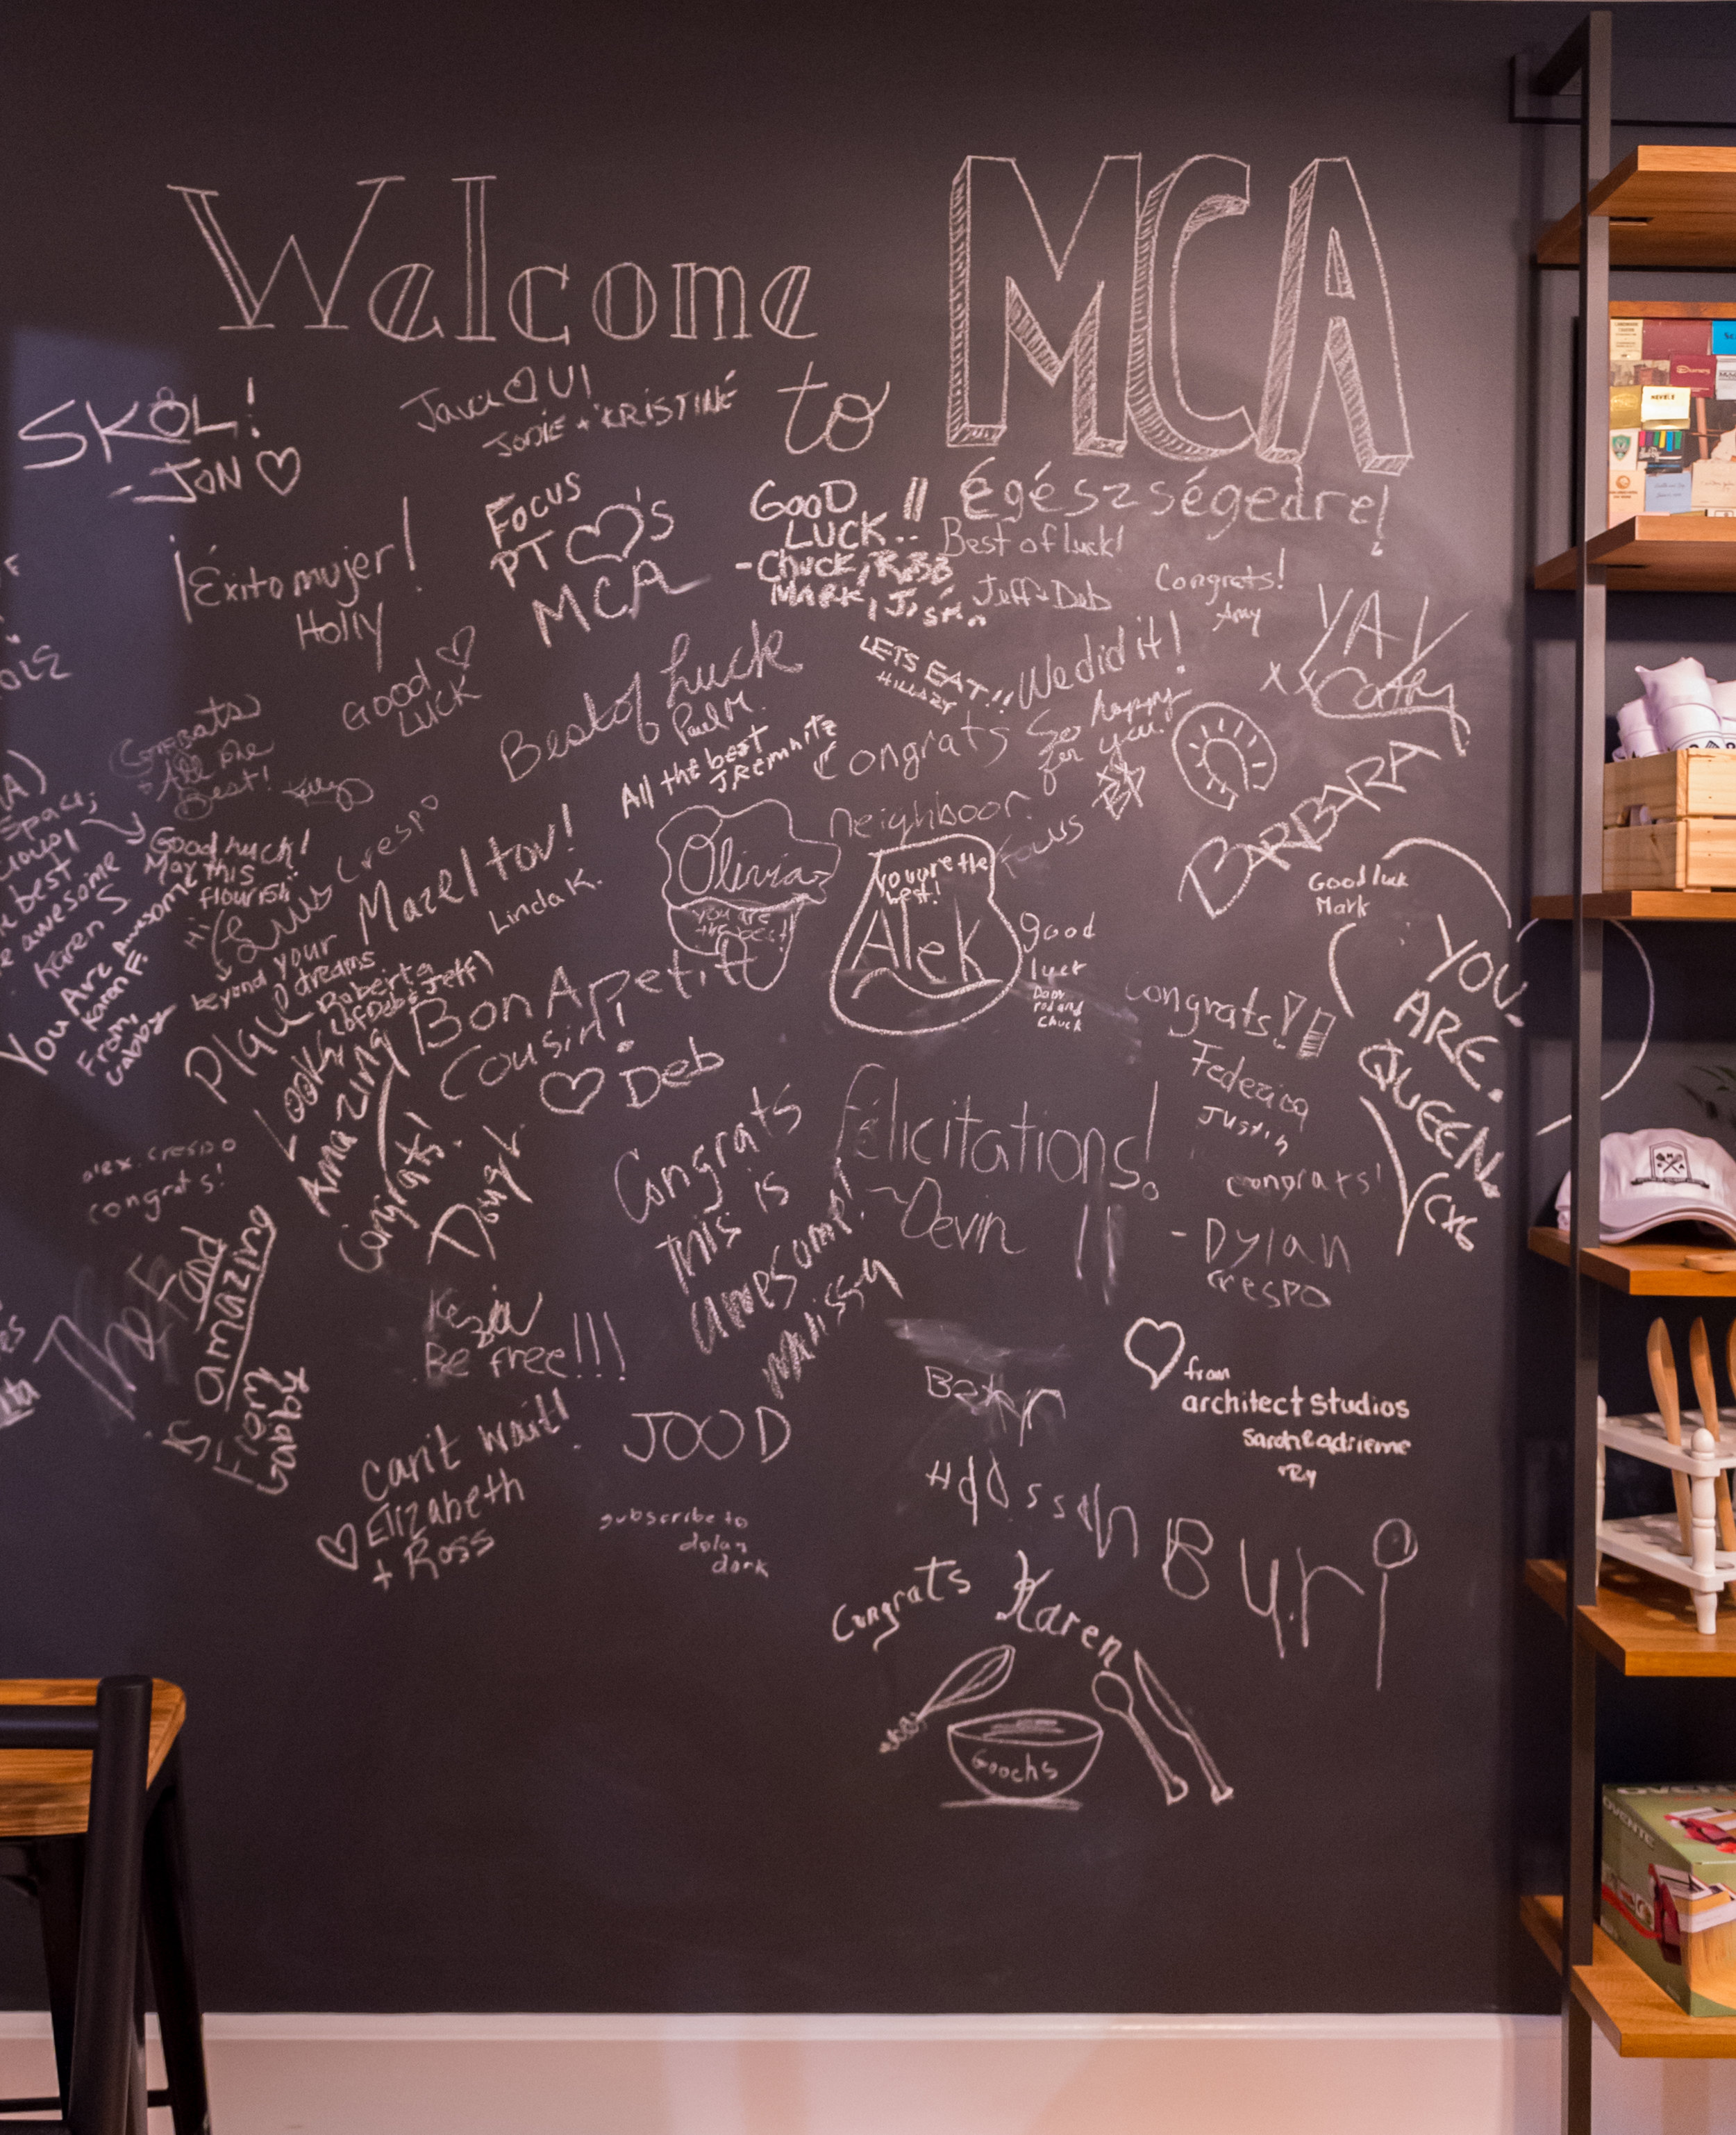 Welcome
to
MCA
SKÅL!
-JON
Java ♡ U!
JODIE + KRISTINE
FOCUS
PT ♡'S
MCA
GOOD
LUCK..!!
-CHUCK, ROBB
MARK,
Égészségedre!
Best of luck!
Jeff & Deb
Congrats!
Amy
YAY
XX Cathy
¡Éxito mujer!
Holly
GOOD
LUCK
Best of Luck
Paul M.
LETS EAT!!
HILLARY
We did it!
So happy
for you.
All the best
Congrats
neighboor.
Focus
BARBARA
Good luck
Mark
YOU.
ARE.
QUEEN.
Congrats
All the
Best!
Kelly
Good Luck!
May this
flourish
beyond your
dreams
Hi
Luis Crespo
Mazel tov!
Linda K.
Olivia
you are
the best!
you're the
best!
Alek
good
luck
rod and
Chuck
space;
best
awesome
Karen S
You Are Awesome
Karen F.
From,
Gabby
Roberta
(of Deb & Jeff)
Looking
Amazing
Bon Apetitt
Cousin!
♡ Deb
Congrats!
Doug
congrats!!
Federica
Justin
alex.crespo
congrats!
Congrats
this is
awesome!
Malissa
félicitations!
~Devin
congrats!
-Dylan
Crespo
The Food
is amazing
From
Gabby
Kezia
Be free!!!
Can't wait!
♡ Elizabeth
+ Ross
JOOD
subscribe to
dolan
dark
♡ from
architect studios
Buri
Congrats Karen
Goochs
OVENTE